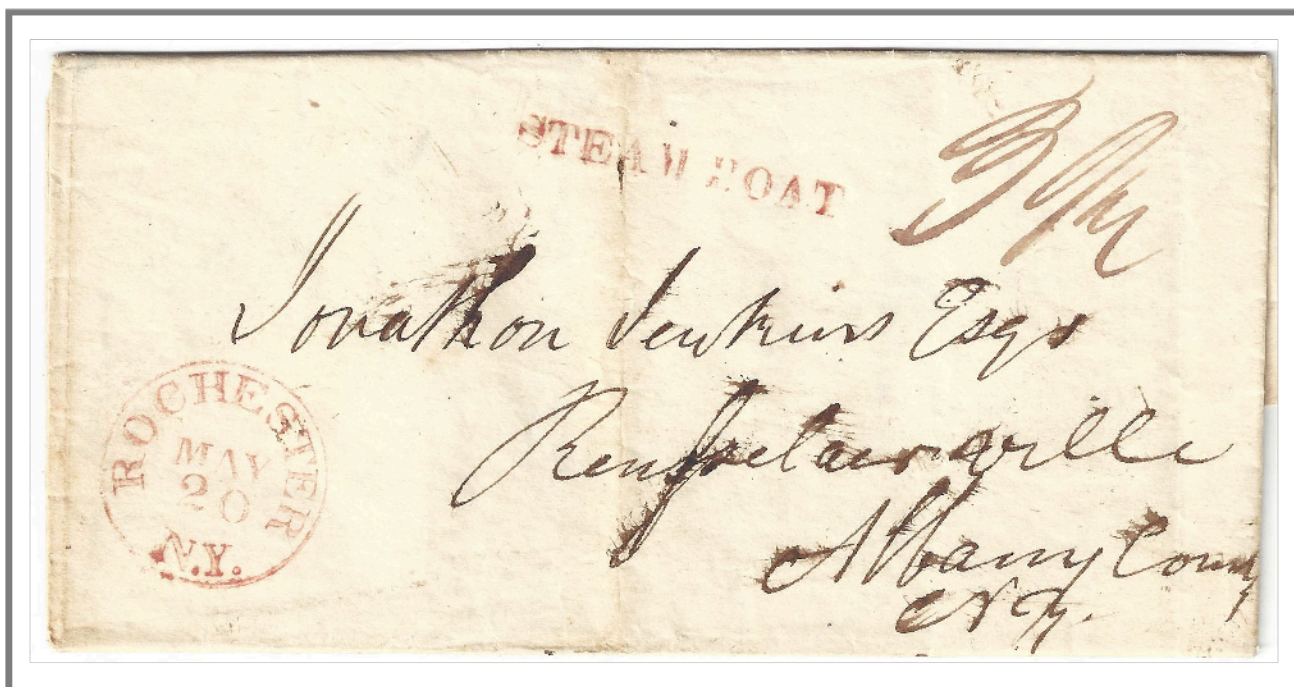 STEAM BOAT
Jonathon Jenkins Esqr
Rensselaerville
Albany County
N.Y.
ROCHESTER
MAY
20
N.Y.